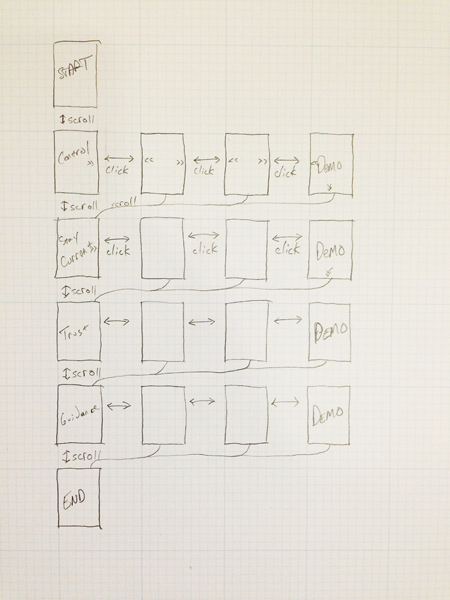 START
↕scroll
Control
»
click
« »
click
« »
click
«
DEMO
↕scroll
scroll
Stay
Current»
click
click
click
DEMO
↕scroll
Trust
DEMO
↕scroll
Guidance
DEMO
↕scroll
END